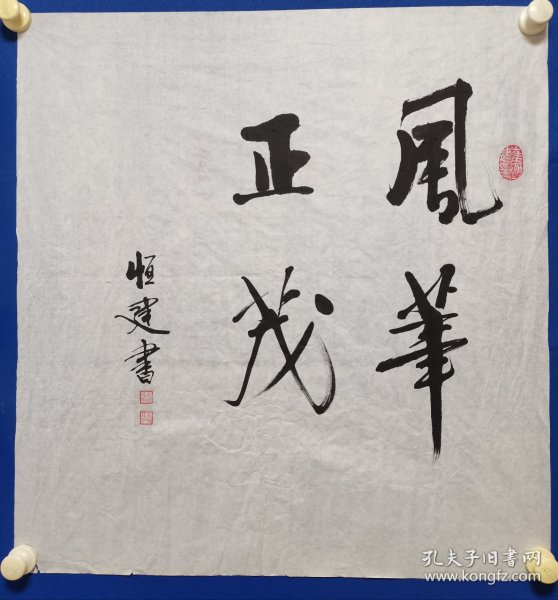 風華
正茂
恒建書
孔夫子旧书网
www.kongfz.com